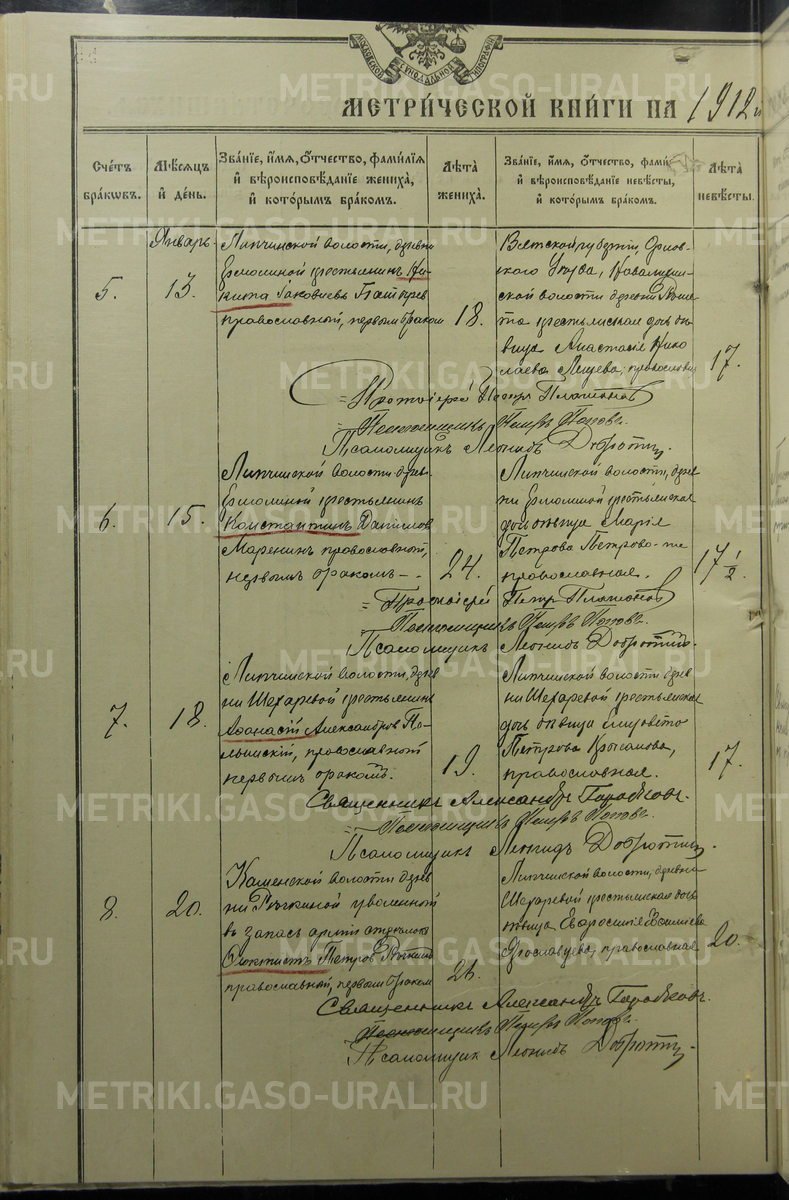 МОСКОВСКОЙ СѴНОДАЛЬНОЙ ТИПОГРАФІИ
МЕТРИ́ЧЕСКОЙ КНИ́ГИ НА 1912 г
Сче́тъ бра́кѡвъ.
Мѣ́сѧцъ и҆ де́нь.
Зва́нїе, и҆́мѧ, ѻ҆́тчество, фами́лїѧ и҆ вѣроисповѣ́данїе жениха̀, и҆ кото́рымъ бра́комъ.
Лѣ́та жениха̀.
Зва́нїе, и҆́мѧ, ѻ҆́тчество, фами́ и҆ вѣроисповѣ́данїе невѣ́сты, и҆ кото́рымъ бра́комъ.
Лѣ́та невѣ́сты.
Январь.
5.
13.
Липчинской волости, дерев
Ермолиной крестьянинъ Ни-
кита Іаковлевъ
православный, первым браком
18.
Вятской губерніи, Орлов-
скаго Уѣзда,
ской волости деревни
крестьянская дочь дѣ-
вица Анастасія Нико
лаева православн
17.
Протоіерей Петръ Платонов
Петръ Попов.
Псаломщикъ Леонидъ Доброти
6.
15.
Липчинской волости дерев.
Ермолиной крестьянинъ
Константинъ Данилов
Маренинъ православный,
первымъ бракомъ –.
24.
Липчинской волости, дерев
ни Ермолиной крестьянская
дочь дѣвица Марія
Петрова Петрово
православная.
17 1/2.
Протоіерей Петръ Платонов
Петръ Попов.
Псаломщикъ Леонидъ Доброти
7.
18.
Липчинской волости, дерев
ни Шегаревой крестьянинъ
Аѳанасій Александров По-
льшскій, православный
первымъ бракомъ.
19.
Липчинской волости дерев
ни Шегаревой крестьянская
дочь дѣвица Елисавета
Петрова
православная.
17.
Священникъ Александръ
Петръ Попов.
Псаломщикъ Леонидъ Доброти
8.
20.
Каменской волости дерев
ни Рычкиной уволенный
въ запасъ арміи
Ѳеоктистъ Петров
православный, первым браком
26.
Липчинской волости, деревни
Шегаревой крестьянская дочь
дѣвица Евфросинія
Ярославцева, православная
20.
Священникъ Александръ
Петръ Попов.
Псаломщикъ Леонидъ Доброти
METRIKI.GASO-URAL.RU